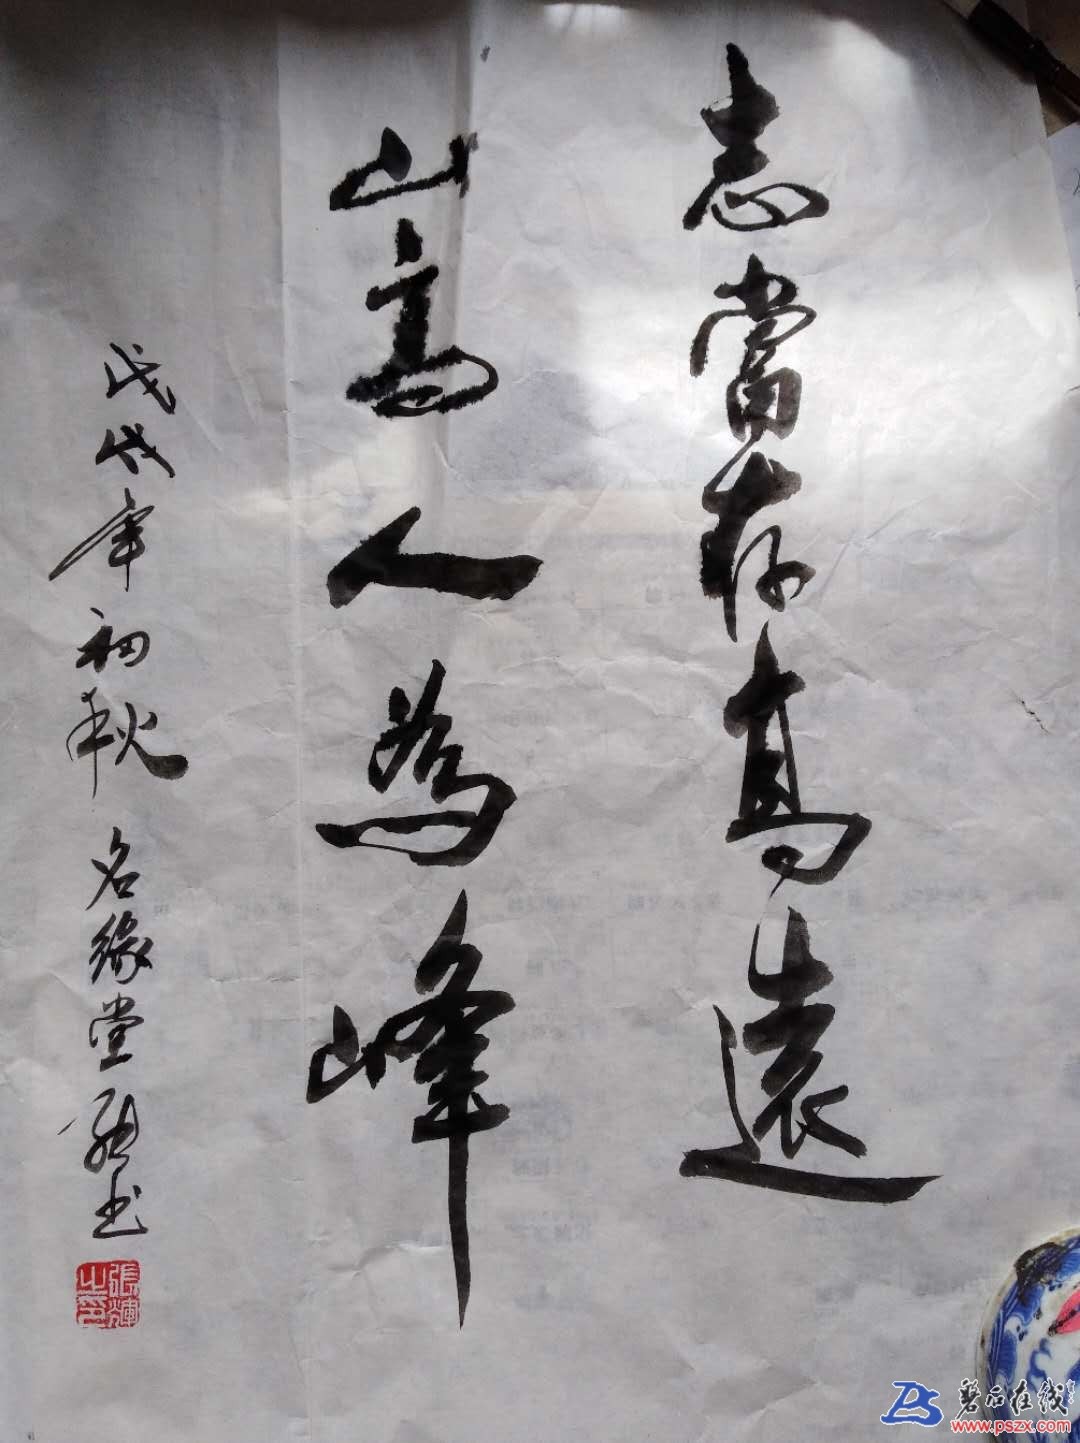 志當存高遠
山高人為峰
戊戌年初秋 名緣堂 書
張輝之印
磐石在线
www.pszx.com